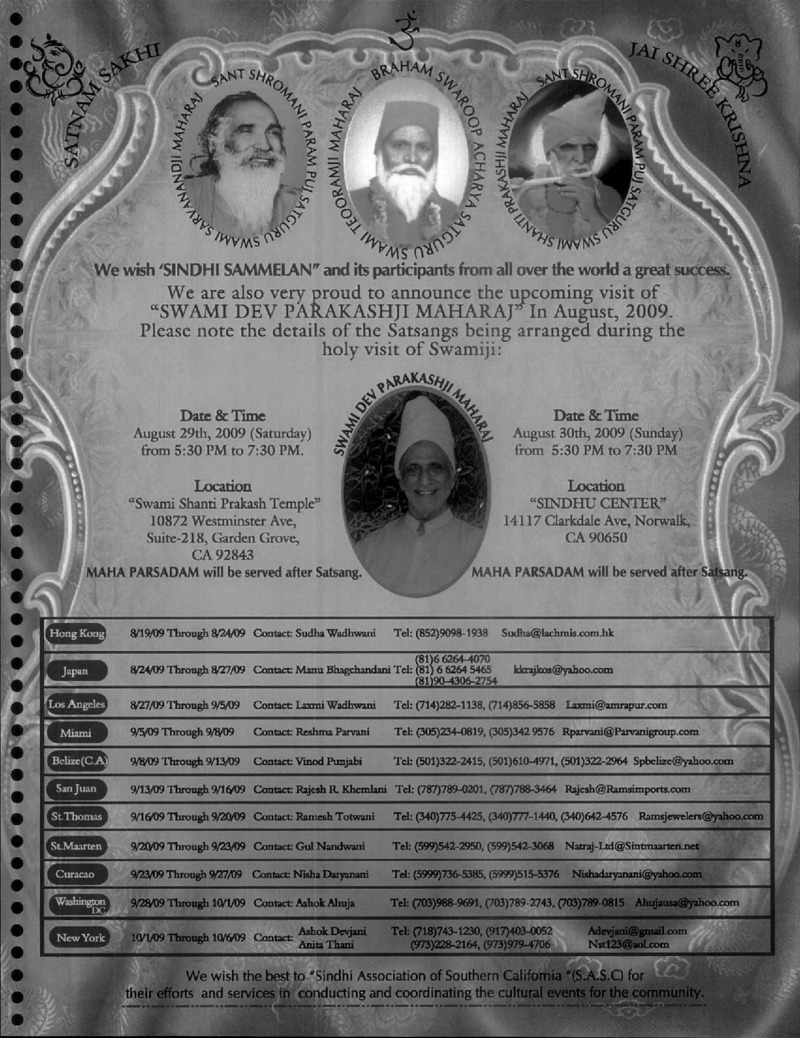 SATNAM SAKHI
ॐ
JAI SHREE KRISHNA
SANT SHROMANI PARAM PUJ SATGURU SWAMI SARVANANDJI MAHARAJ
BRAHAM SWAROOP ACHARYA SATGURU SWAMI TEOORAMJI MAHARAJ
SANT SHROMANI PARAM PUJ SATGURU SWAMI SHANTI PRAKASHJI MAHARAJ
We wish 'SINDHI SAMMELAN" and its participants from all over the world a great success.
We are also very proud to announce the upcoming visit of
"SWAMI DEV PARAKASHJI MAHARAJ" In August, 2009.
Please note the details of the Satsangs being arranged during the
holy visit of Swamiji:
SWAMI DEV PARAKASHJI MAHARAJ
Date & Time
August 29th, 2009 (Saturday)
from 5:30 PM to 7:30 PM.
Location
"Swami Shanti Prakash Temple"
10872 Westminster Ave,
Suite-218, Garden Grove,
CA 92843
MAHA PARSADAM will be served after Satsang.
Date & Time
August 30th, 2009 (Sunday)
from 5:30 PM to 7:30 PM
Location
"SINDHU CENTER"
14117 Clarkdale Ave, Norwalk,
CA 90650
MAHA PARSADAM will be served after Satsang.
Hong Kong 8/19/09 Through 8/24/09 Contact: Sudha Wadhwani Tel: (852)9098-1938 Sudha@lachmis.com.hk
(81)6 6264-4070
Japan 8/24/09 Through 8/27/09 Contact: Manu Bhagchandani Tel: (81) 6 6264 5465 kkrajkos@yahoo.com
(81)90-4306-2754
Los Angeles 8/27/09 Through 9/5/09 Contact: Laxmi Wadhwani Tel: (714)282-1138, (714)856-5858 Laxmi@amrapur.com
Miami 9/5/09 Through 9/8/09 Contact: Reshma Parvani Tel: (305)234-0819, (305)342 9576 Rparvani@Parvanigroup.com
Belize(C.A) 9/8/09 Through 9/13/09 Contact: Vinod Punjabi Tel: (501)322-2415, (501)610-4971, (501)322-2964 Spbelize@yahoo.com
San Juan 9/13/09 Through 9/16/09 Contact: Rajesh R. Khemlani Tel: (787)789-0201, (787)788-3464 Rajesh@Ramsimports.com
St.Thomas 9/16/09 Through 9/20/09 Contact: Ramesh Totwani Tel: (340)775-4425, (340)777-1440, (340)642-4576 Ramsjewelers@yahoo.com
St.Maarten 9/20/09 Through 9/23/09 Contact: Gul Nandwani Tel: (599)542-2950, (599)542-3068 Natraj-Ltd@Sintmaarten.net
Curacao 9/23/09 Through 9/27/09 Contact: Nisha Daryanani Tel: (5999)736-5385, (5999)515-5376 Nishadaryanani@yahoo.com
Washington DC 9/28/09 Through 10/1/09 Contact: Ashok Ahuja Tel: (703)988-9691, (703)789-2743, (703)789-0815 Ahujausa@yahoo.com
New York 10/1/09 Through 10/6/09 Contact: Ashok Devjani Tel: (718)743-1230, (917)403-0052 Adevjani@gmail.com
Anita Thani (973)228-2164, (973)979-4706 Nst123@aol.com
We wish the best to "Sindhi Association of Southern California "(S.A.S.C) for
their efforts and services in conducting and coordinating the cultural events for the community.